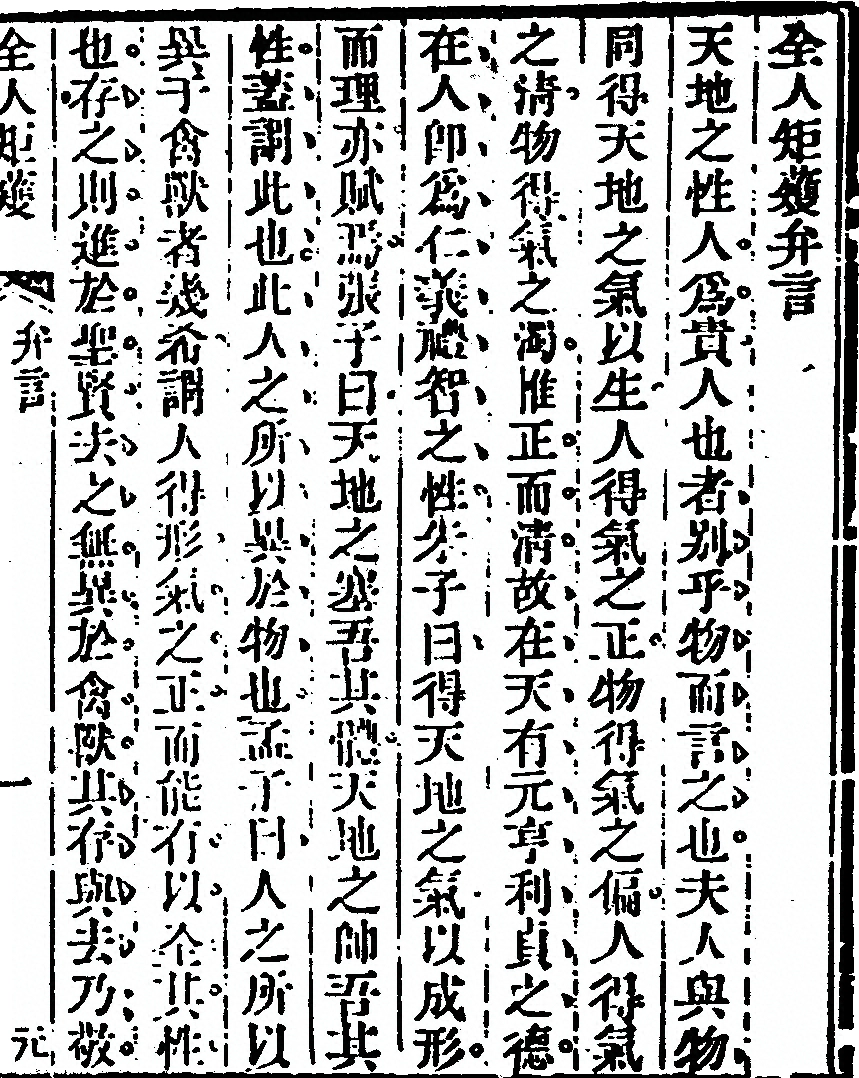 全人矩矱弁言
天地之性人爲貴人也者別乎物而言之也夫人與物
同得天地之氣以生人得氣之正物得氣之偏人得氣
之淸物得氣之濁惟正而淸故在天有元亨利貞之德
在人卽爲仁義禮智之性朱子曰得天地之氣以成形
而理亦賦焉張子曰天地之塞吾其體天地之帥吾其
性蓋謂此也此人之所以異於物也孟子曰人之所以
異于禽獸者幾希謂人得形氣之正而能有以全其性
也存之則進於聖賢去之無異於禽獸其存與去乃敬
全人矩矱
弁言
一
元